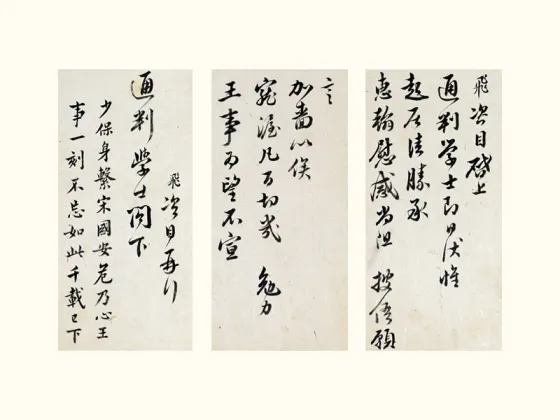 飛咨目啓上
通判学士即日伏惟
起居清勝承
惠翰慰感尚阻 披悟願
言
加嗇以俟
寵渥凡百切幾 勉力
王事為望不宣
飛咨目再拜
通判學士閣下
少保身繫宋國安危乃心王
事一刻不忘如此千載已下